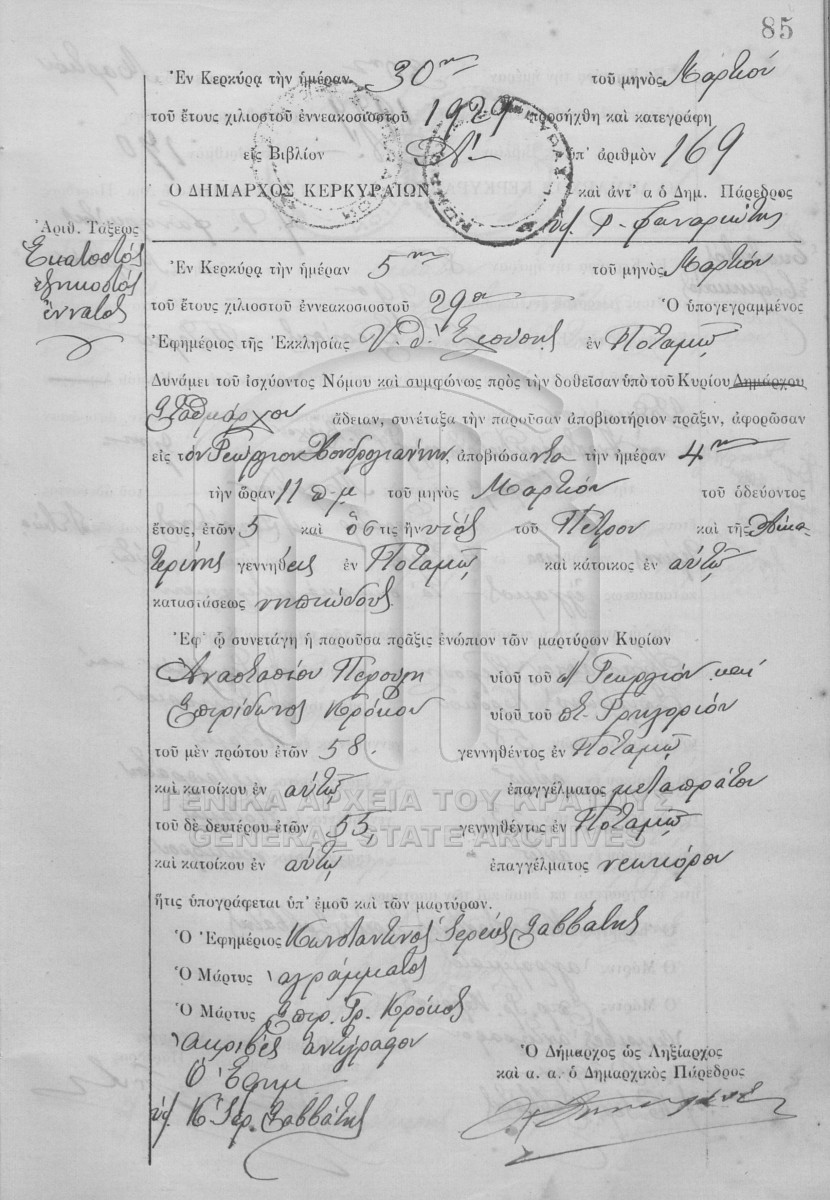 85
Ἐν Κερκύρᾳ τὴν ἡμέραν 30ην τοῦ μηνὸς Μαρτίου
τοῦ ἔτους χιλιοστοῦ ἐννεακοσιοστοῦ 1929 προσήχθη καὶ κατεγράφη
εἰς Βιβλίον ὑπ' ἀριθμὸν 169
Ο ΔΗΜΑΡΧΟΣ ΚΕΡΚΥΡΑΙΩΝ καὶ ἀντ' α ὁ Δημ. Πάρεδρος
Φαναριώτης
Ἀριθ. Τάξεως
Ἑκατοστὸς
ἑξηκοστὸς
ἔννατος
Ἐν Κερκύρᾳ τὴν ἡμέραν 5ην τοῦ μηνὸς Μαρτίου
τοῦ ἔτους χιλιοστοῦ ἐννεακοσιοστοῦ 29ου Ὁ ὑπογεγραμμένος
Ἐφημέριος τῆς Ἐκκλησίας Υ. Θ. ἐν Ποταμῷ
Δυνάμει τοῦ ἰσχύοντος Νόμου καὶ συμφώνως πρὸς τὴν δοθεῖσαν ὑπὸ τοῦ Κυρίου Δημάρχου
Σταθμάρχου ἄδειαν, συνέταξα τὴν παροῦσαν ἀποβιωτήριον πρᾶξιν, ἀφορῶσαν
εἰς τὸν Γεώργιον Χονδρογιάννην, ἀποβιώσαντα τὴν ἡμέραν 4ην
τὴν ὥραν 11 π.μ. τοῦ μηνὸς Μαρτίου τοῦ ὁδεύοντος
ἔτους, ἐτῶν 5 καὶ ὅστις ἦν υἱὸς τοῦ Πέτρου καὶ τῆς Αἰκα-
τερίνης γεννηθεὶς ἐν Ποταμῷ καὶ κάτοικος ἐν αὐτῷ
καταστάσεως νηπιώδους.
Ἐφ' ᾧ συνετάγη ἡ παροῦσα πρᾶξις ἐνώπιον τῶν μαρτύρων Κυρίων
Ἀναστασίου Περούλη υἱοῦ τοῦ Γεωργίου καὶ
Σπυρίδωνος Κρόκου υἱοῦ τοῦ Γρηγορίου
τοῦ μὲν πρώτου ἐτῶν 58. γεννηθέντος ἐν Ποταμῷ
καὶ κατοίκου ἐν αὐτῷ ἐπαγγέλματος μεταπράτου
ΓΕΝΙΚΑ ΑΡΧΕΙΑ ΤΟΥ ΚΡΑΤΟΥΣ
τοῦ δὲ δευτέρου ἐτῶν 55, γεννηθέντος ἐν Ποταμῷ
GENERAL STATE ARCHIVES
καὶ κατοίκου ἐν αὐτῷ ἐπαγγέλματος νεωκόρου
ἥτις ὑπογράφεται ὑπ' ἐμοῦ καὶ τῶν μαρτύρων.
Ὁ Ἐφημέριος Κωνσταντῖνος Ἱερεὺς Σαββάτης
Ὁ Μάρτυς ἀγράμματος
Ὁ Μάρτυς Σπυρ. Γρ. Κρόκος
Ἀκριβὲς ἀντίγραφον
Ὁ Ἐφημ
Κ. Ἱερ. Σαββάτης
Ὁ Δήμαρχος ὡς Ληξίαρχος
καὶ α. α. ὁ Δημαρχικὸς Πάρεδρος